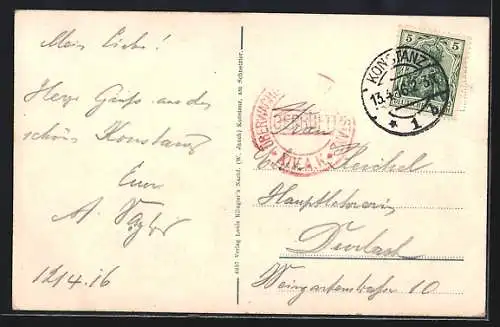 Mein Liebe!
Herzl. Grüße aus dem
schönen Konstanz
Euer
A.
12/4.16
6497 Verlag Louis Klüger's Nachf. (W. Jauch) Konstanz, am Schnetztor.
5 5
KONSTANZ
13.4.
* 1
ÜBERWACHUNGS
XIV. A.K.
Frau
Reichel
Hauptlehrerin
Durlach
Weingartenstraße 10